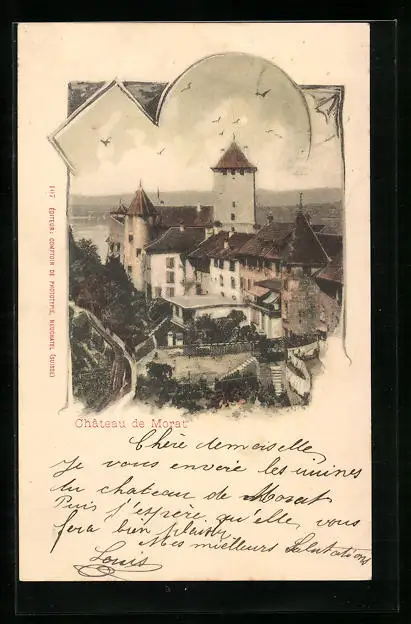 107 ÉDITEUR: COMPTOIR DE PHOTOTYPIE, NEUCHATEL (SUISSE)
Château de Morat
Chère demoiselle
Je vous envoie les ruines
du chateau de Morat
Puis j'espère qu'elle vous
fera bien plaisir
Mes meilleurs Salutations
Louis